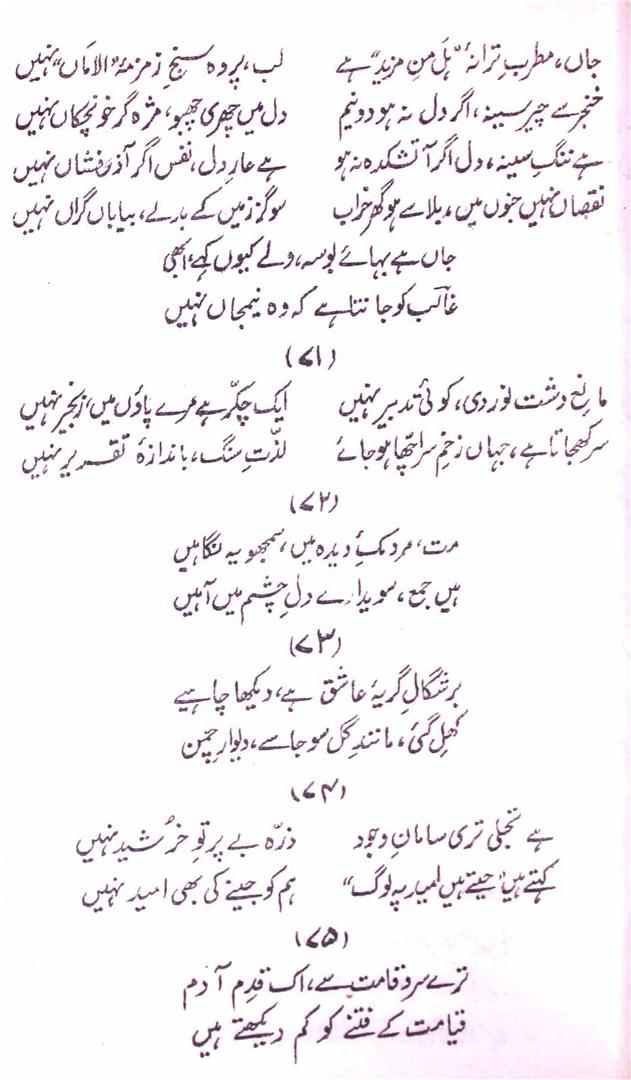 جاں، مطربِ ترانۂ "ہَل مِن مزید" ہے لب، پردہ سنجِ زمزمۂ "الاماں" نہیں
خنجر سے چیر سینہ، اگر دل نہ ہو دو نیم دل میں چھری چبھو، مژہ گر خونچکاں نہیں
ہے ننگِ سینہ، دل اگر آتشکدہ نہ ہو ہے عارِ دل، نفس اگر آذر فشاں نہیں
نقصاں نہیں جنوں میں، بلا سے ہو گھر خراب سو گز زمیں کے بدلے، بیاباں گراں نہیں
جاں ہے بہائے بوسہ، ولے کیوں کہے، ابھی
غالب کو جانتا ہے کہ وہ نیمجاں نہیں
(۷۱)
مانعِ دشت نوردی، کوئی تدبیر نہیں ایک چکّر ہے مرے پاؤں میں، زنجیر نہیں
سر کھجاتا ہے، جہاں زخمِ سر اچھا ہو جائے لذّتِ سنگ، باندازۂ تقریر نہیں
(۷۲)
مت، مردمکِ دیدہ میں، سمجھو یہ نگاہیں
ہیں جمع، سویدائے دلِ چشم میں آہیں
(۷۳)
برشگالِ گریۂ عاشق ہے، دیکھا چاہیے
کھِل گئی، مانندِ گل سو جا سے، دیوارِ چمن
(۷۴)
ہے تجلی تری سامانِ وجود ذرّہ بے پرتوِ خُرشید نہیں
کہتے ہیں "جیتے ہیں امید پہ لوگ" ہم کو جینے کی بھی امید نہیں
(۷۵)
ترے سرو قامت سے، اک قدِ آدم
قیامت کے فتنے کو کم دیکھتے ہیں